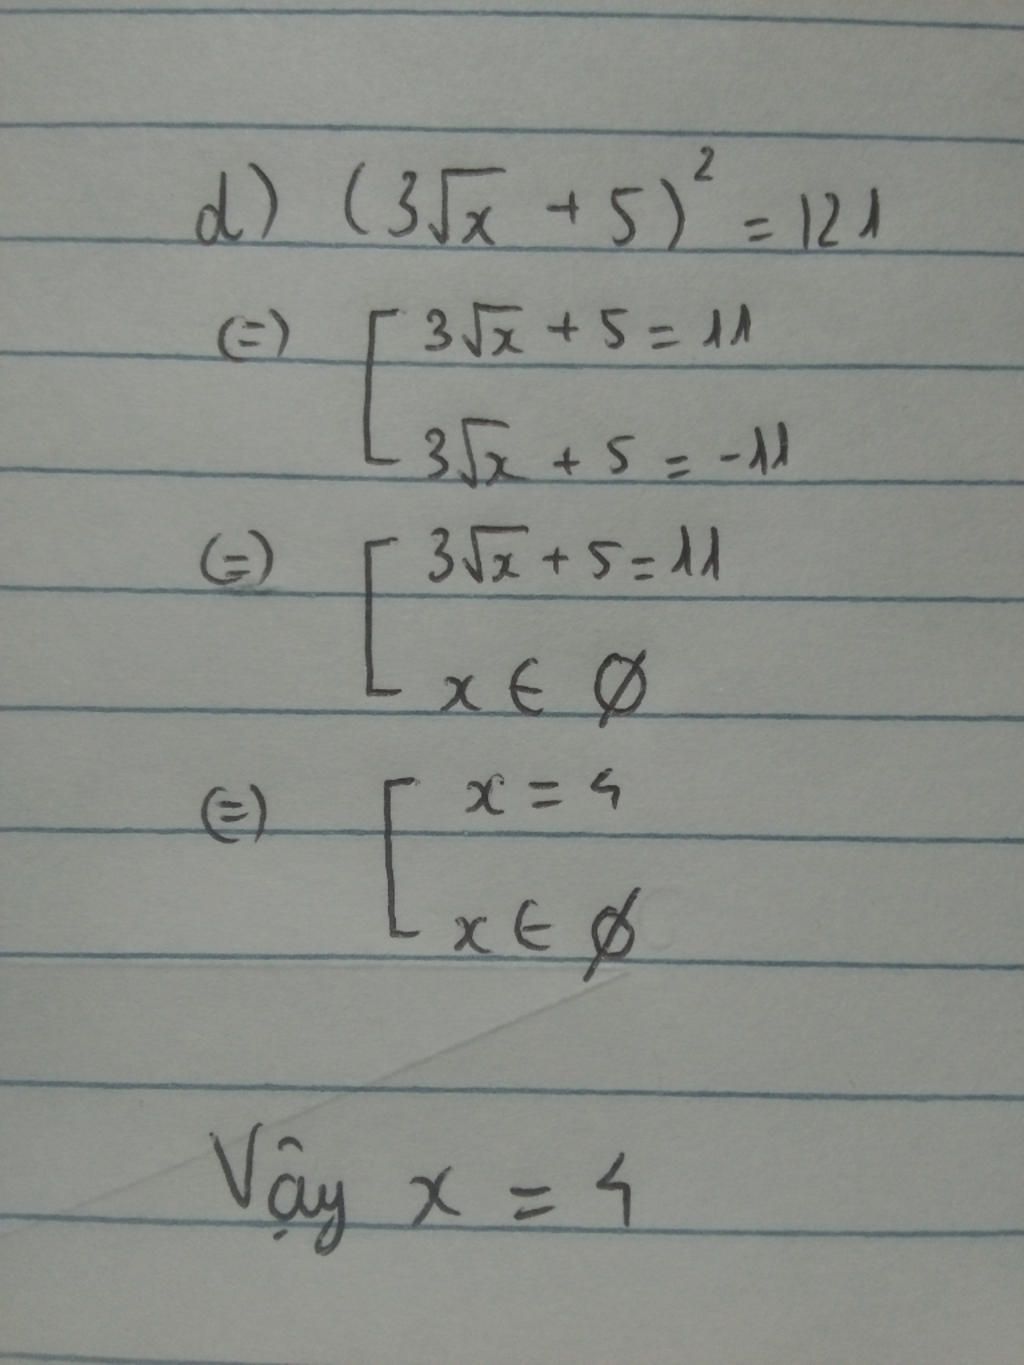 d) (3√x + 5)² = 121
(=) [ 3√x + 5 = 11
3√x + 5 = -11
(=) [ 3√x + 5 = 11
x ∈ ∅
(=) [ x = 4
x ∈ ∅
Vậy x = 4